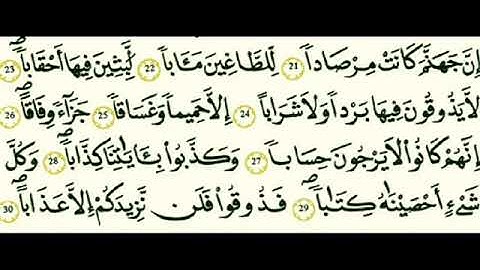 إِنَّ جَهَنَّمَ كَانَتْ مِرْصَادًا ٢١ لِّلطَّاغِينَ مَـَٔابًا ٢٢ لَّٰبِثِينَ فِيهَآ أَحْقَابًا ٢٣
لَّا يَذُوقُونَ فِيهَا بَرْدًا وَلَا شَرَابًا ٢٤ إِلَّا حَمِيمًا وَغَسَّاقًا ٢٥ جَزَآءً وِفَاقًا ٢٦
إِنَّهُمْ كَانُوا۟ لَا يَرْجُونَ حِسَابًا ٢٧ وَكَذَّبُوا۟ بِـَٔايَٰتِنَا كِذَّابًا ٢٨ وَكُلَّ
شَىْءٍ أَحْصَيْنَٰهُ كِتَٰبًا ٢٩ فَذُوقُوا۟ فَلَن نَّزِيدَكُمْ إِلَّا عَذَابًا ٣٠